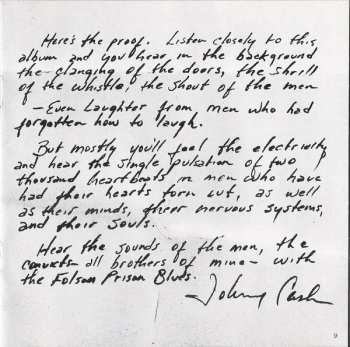 Here's the proof. Listen closely to this
album and you hear in the background
the clanging of the doors, the shrill
of the whistle, the shout of the men
- Even laughter from men who had
forgotten how to laugh.
But mostly you'll feel the electricity
and hear the single pulsation of two
thousand heartbeats in men who have
had their hearts torn out, as well
as their minds, their nervous systems,
and their souls.
Hear the sounds of the men, the
convicts - all brothers of mine - with
the Folsom Prison Blues.
Johnny Cash
9